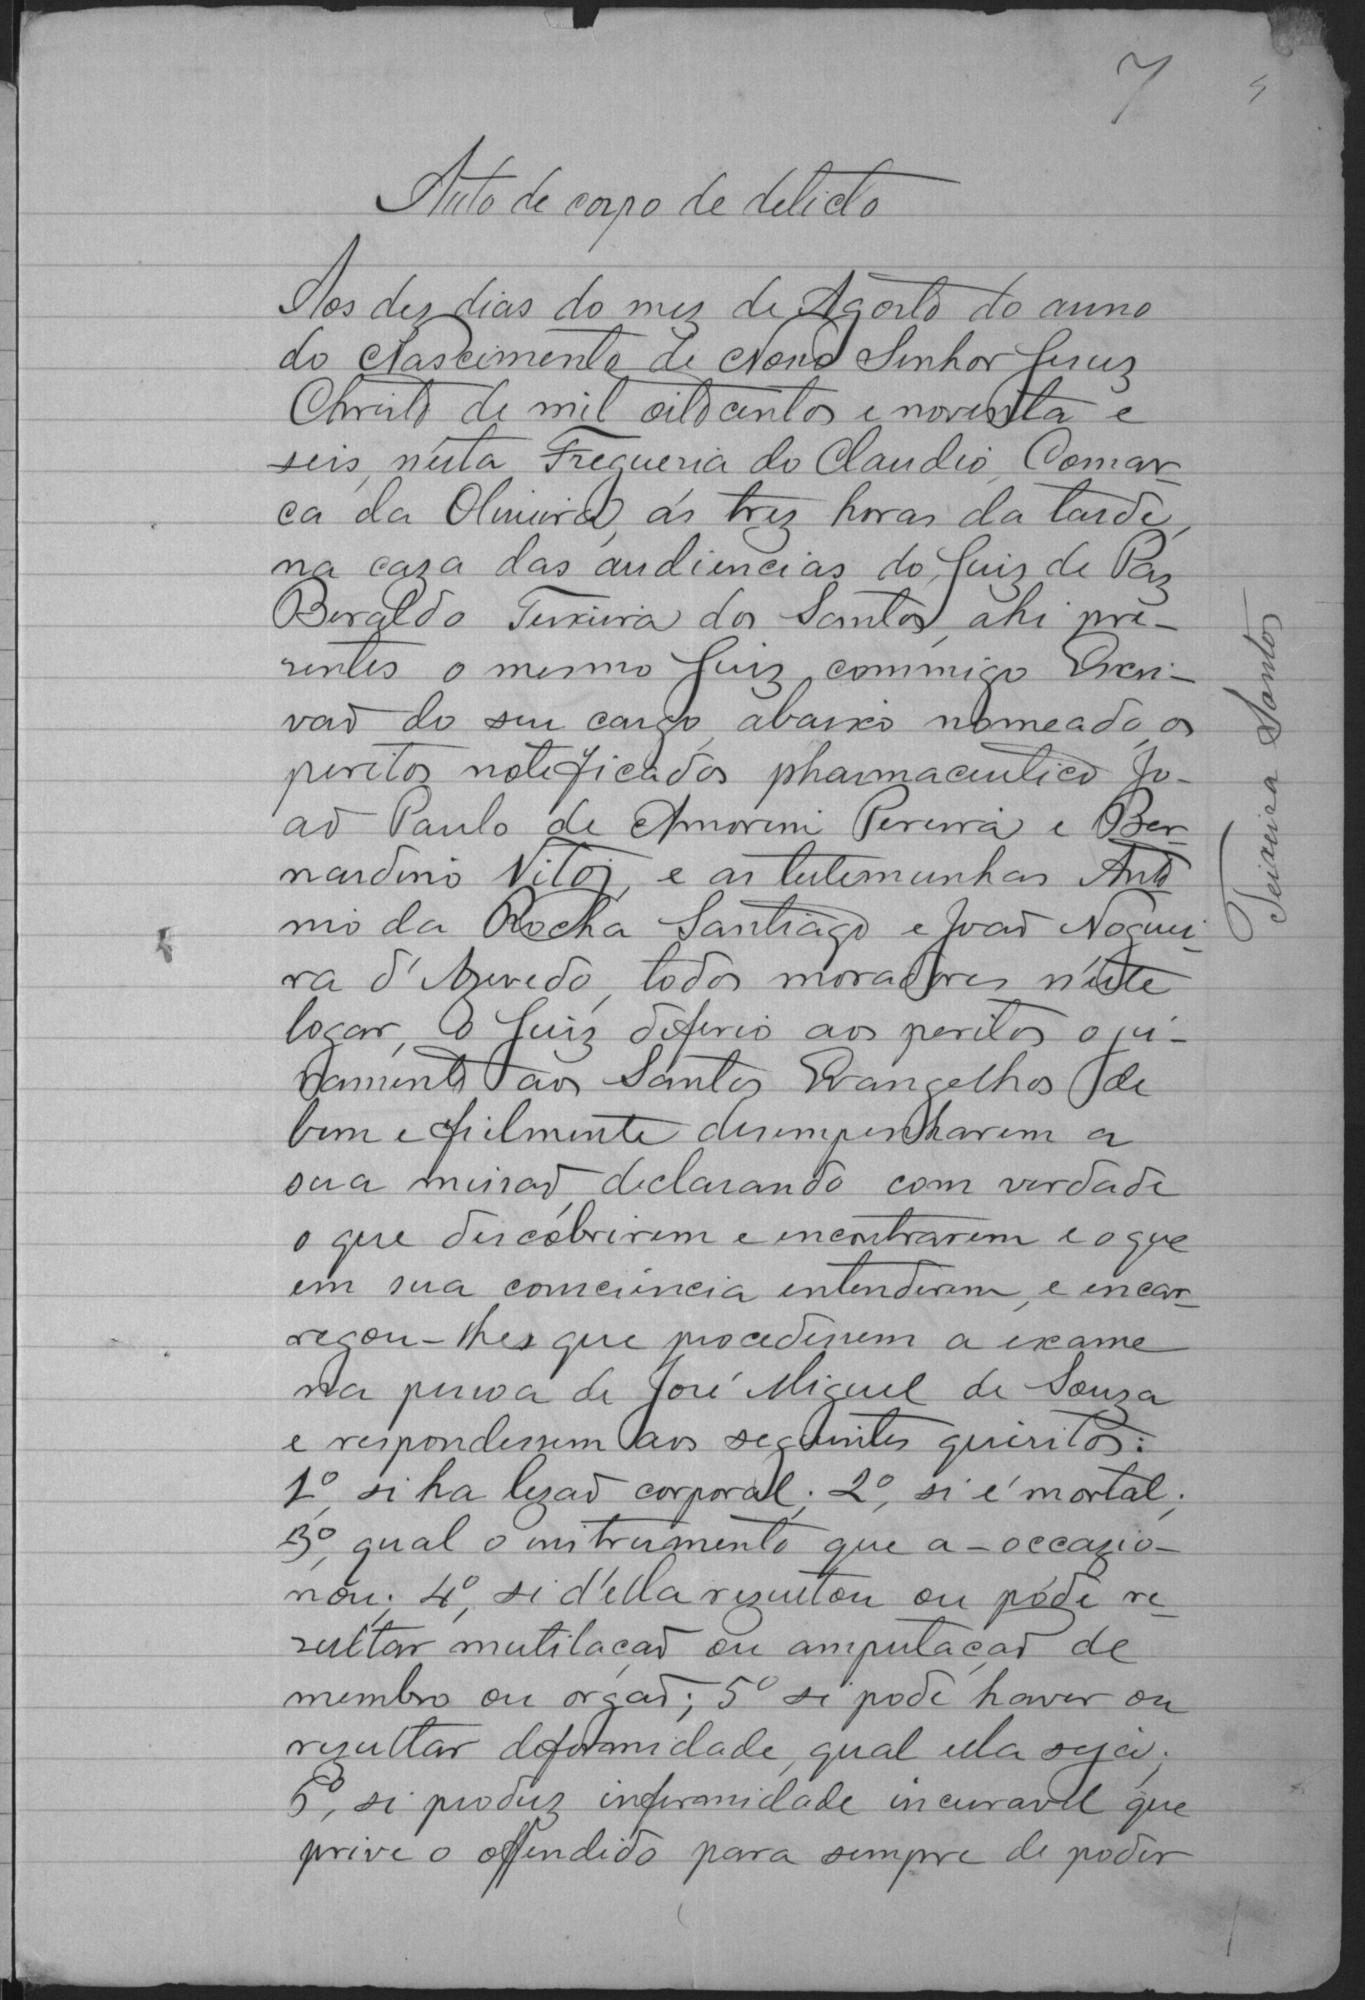 7
Auto de corpo de delicto
Aos dez dias do mez de Agosto do anno
do Nascimento de Nosso Senhor Jesuz
Christo de mil oitocentos e noventa e
seis, n'esta Freguesia do Claudio, Comar-
ca da Oliveira, ás trez horas da tarde,
na caza das audiencias do Juiz de Paz
Beraldo Teixeira dos Santos, ahi pre-
sentes o mesmo Juiz, commigo Escri-
vaõ do seu cargo, abaixo nomeado, os
peritos notificados pharmaceutico Jo-
aõ Paulo de Amorim Pereira e Ber-
nardino Vitoi, e as testemunhas Anto
nio da Rocha Santiago e Joaõ Noguei-
ra d'Azevedo, todos moradores n'este
logar, o Juiz deferio aos peritos o ju-
ramento aos Santos Evangelhos de
bem e fielmente desempenharem a
sua missaõ, declarando com verdade
o que descobrirem e encontrarem e o que
em sua consciencia entenderem, e encar-
regou-lhes que procedessem a exame
na pessoa de José Miguel de Souza
e respondessem aos seguintes quesitos:
1º, si ha lezaõ corporal; 2º, si é mortal;
3º, qual o instrumento que a-occazio-
nou; 4º, si d'ella rezultou ou póde re-
zultar mutilaçaõ ou amputaçaõ de
membro ou orgaõ; 5º si pode haver ou
rezultar deformidade, qual ella seja;
6º, si produz infermidade incuravel que
prive o offendido para sempre de poder
Teixeira Santos